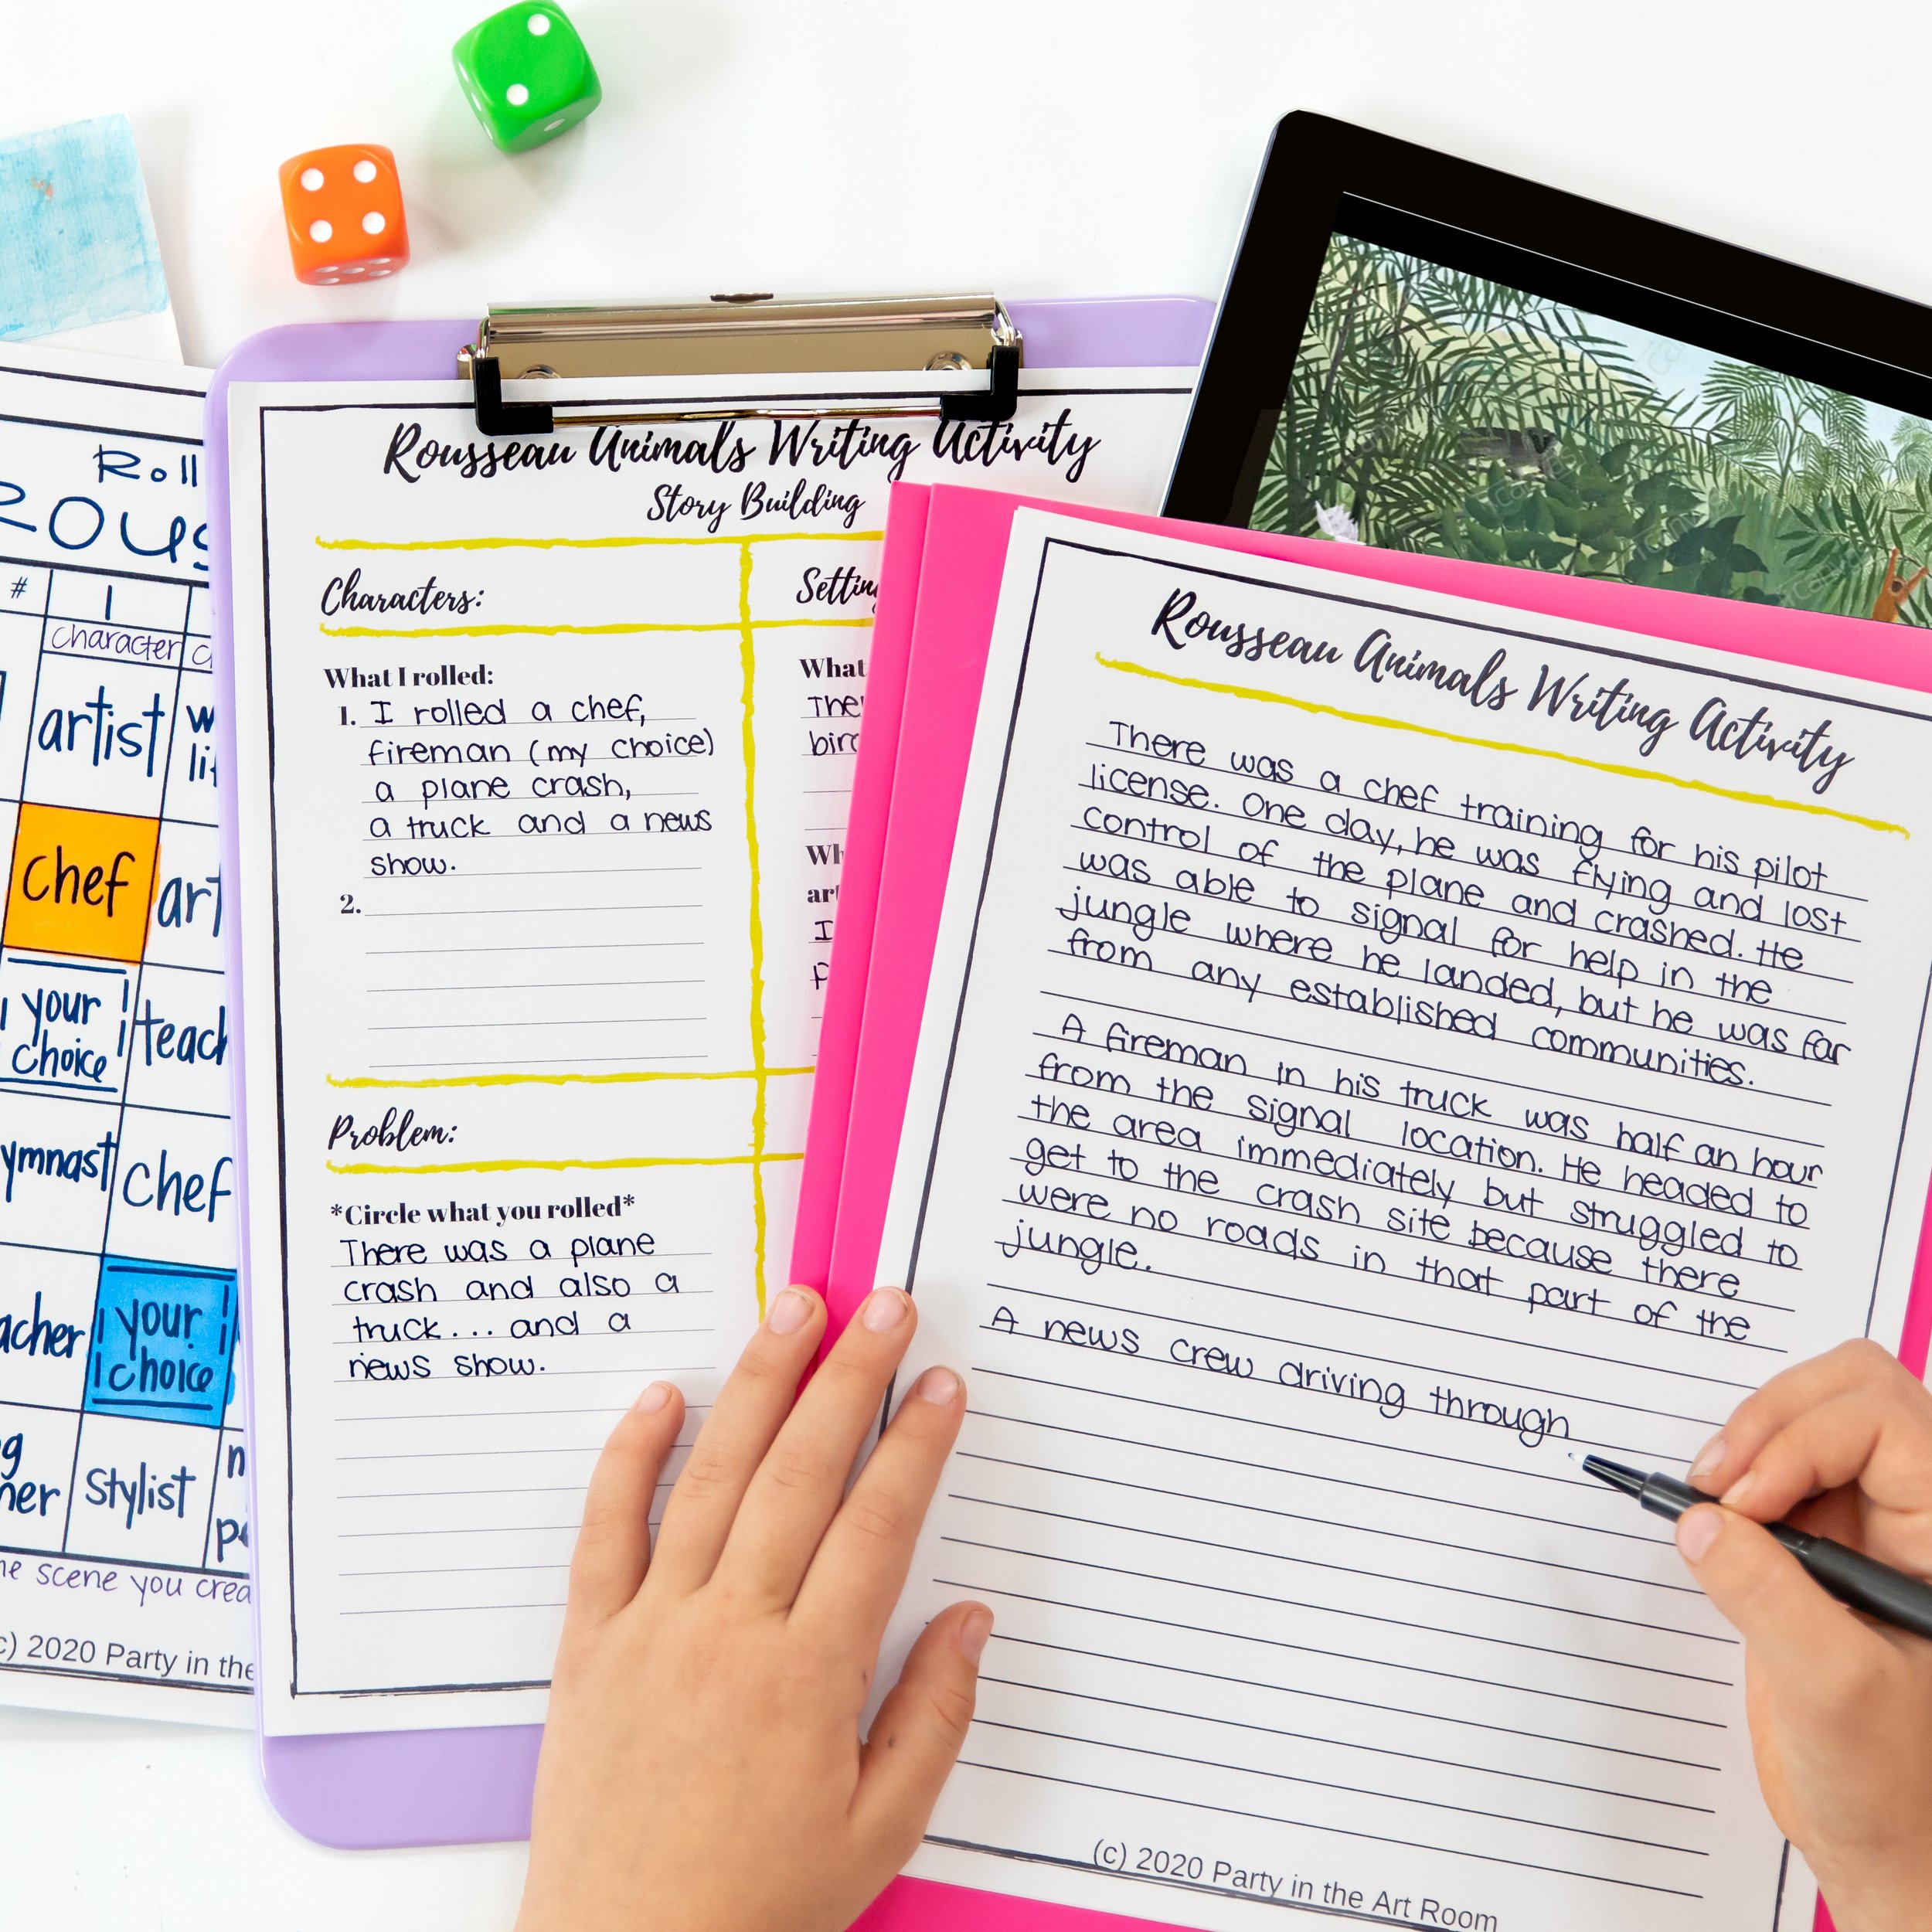 Roll
#
1
character
artist
chef
your
choice
teach
ymnast
chef
acher
your
choice
stylist
scene you crea
(c) 2020 Party in the
Rousseau Animals Writing Activity
Story Building
Characters:
What I rolled:
1. I rolled a chef,
fireman (my choice)
a plane crash,
a truck and a news
show.
2.
Problem:
*Circle what you rolled*
There was a plane
crash and also a
truck... and a
news show.
Settin
What
The
birc
Wh
art
I
Rousseau Animals Writing Activity
There was a chef training for his pilot
license. One day, he was flying and lost
control of the plane and crashed. He
was able to signal for help in the
jungle where he landed, but he was far
from any established communities.
A fireman in his truck was half an hour
from the signal location. He headed to
the area immediately but struggled to
get to the crash site because there
were no roads in that part of the
jungle.
A news crew driving through
(c) 2020 Party in the Art Room